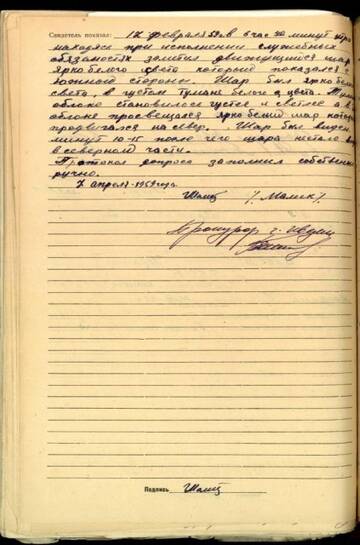 Свидетель показал: 17 февраля 59 г. в 6 час 40 минут утра
находясь при исполнении служебных
обязанностях заметил движущийся шар
ярко белого света который показался с
южной стороны. Шар был ярко белого
света, в густом тумане белого цвета.
облако становилось гуще и светлее а в
облаке просвещался ярко белый шар который
продвигался на север. Шар был виден
минут 10-15 после чего шара не стало
в северной части.
Протокол допроса заполнил собственно-
ручно.
7 апреля-1959 года.
/Малик/.
Прокурор г. Ивдель
Подпись